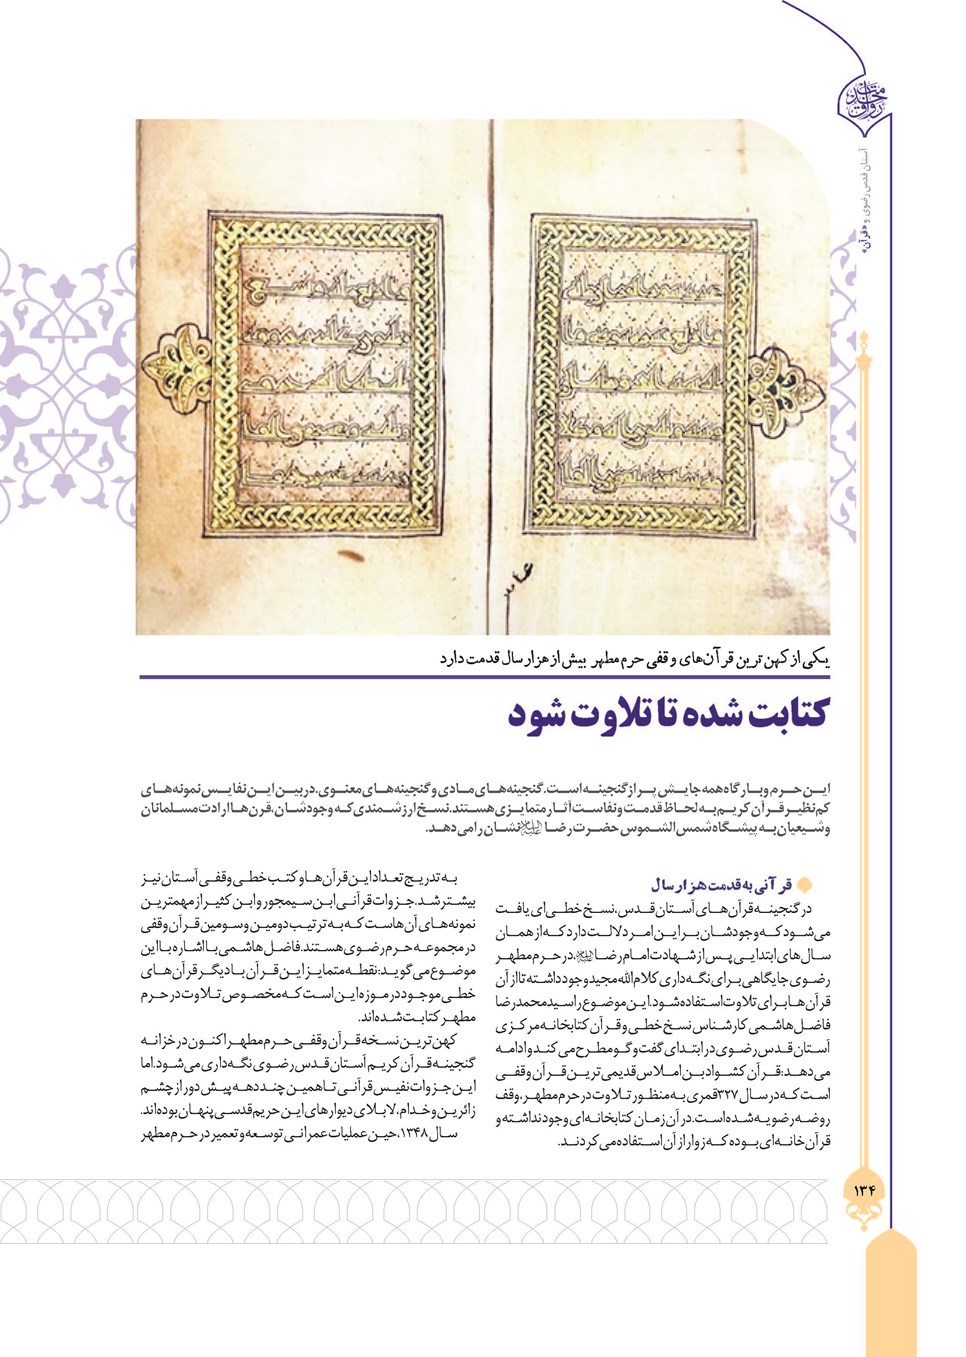 آستان قدس رضوی و «قرآن»
یکی از کهن ترین قرآن‌های وقفی حرم مطهر بیش از هزار سال قدمت دارد
کتابت شده تا تلاوت شود
این حرم و بارگاه همه جایش پر از گنجینه است. گنجینه‌های مادی و گنجینه‌های معنوی. در بین این نفایس نمونه‌های
کم‌نظیر قرآن کریم به لحاظ قدمت و نفاست آثار متمایزی هستند. نسخ ارزشمندی که وجودشان، قرن‌ها ارادت مسلمانان
و شیعیان به پیشگاه شمس الشموس حضرت رضا علیه‌السلام نشان را می دهد.
قرآنی به قدمت هزار سال
در گنجینه قرآن‌های آستان قدس، نسخ خطی‌ای یافت
می‌شود که وجودشان بر این امر دلالت دارد که از همان
سال‌های ابتدایی پس از شهادت امام رضا علیه‌السلام، در حرم مطهر
رضوی جایگاهی برای نگه‌داری کلام الله مجید وجود داشته تا از آن
قرآن‌ها برای تلاوت استفاده شود. این موضوع را سید محمدرضا
فاضل هاشمی کارشناس نسخ خطی و قرآن کتابخانه مرکزی
آستان قدس رضوی در ابتدای گفت و گو مطرح می کند و ادامه
می‌دهد: قرآن کشواد بن املاس قدیمی ترین قرآن وقفی
است که در سال ۳۲۷ قمری به منظور تلاوت در حرم مطهر، وقف
روضه رضویه شده است. در آن زمان کتابخانه‌ای وجود نداشته و
قرآن خانه‌ای بوده که زوار از آن استفاده می کردند.
به تدریج تعداد این قرآن‌ها و کتب خطی وقفی آستان نیز
بیشتر شد. جزوات قرآنی ابن سیمجور و ابن کثیر از مهمترین
نمونه‌های آن هاست که به ترتیب دومین و سومین قرآن وقفی
در مجموعه حرم رضوی هستند. فاضل هاشمی با اشاره با این
موضوع می گوید: نقطه متمایز این قرآن با دیگر قرآن‌های
خطی موجود در موزه این است که مخصوص تلاوت در حرم
مطهر کتابت شده‌اند.
کهن ترین نسخه قرآن وقفی حرم مطهر اکنون در خزانه
گنجینه قرآن کریم آستان قدس رضوی نگه‌داری می شود. اما
این جزوات نفیس قرآنی تا همین چند دهه پیش دور از چشم
زائرین و خدام، لابلای دیوارهای این حریم قدسی پنهان بوده‌اند.
سال ۱۳۴۸، حین عملیات عمرانی توسعه و تعمیر در حرم مطهر
۱۳۴